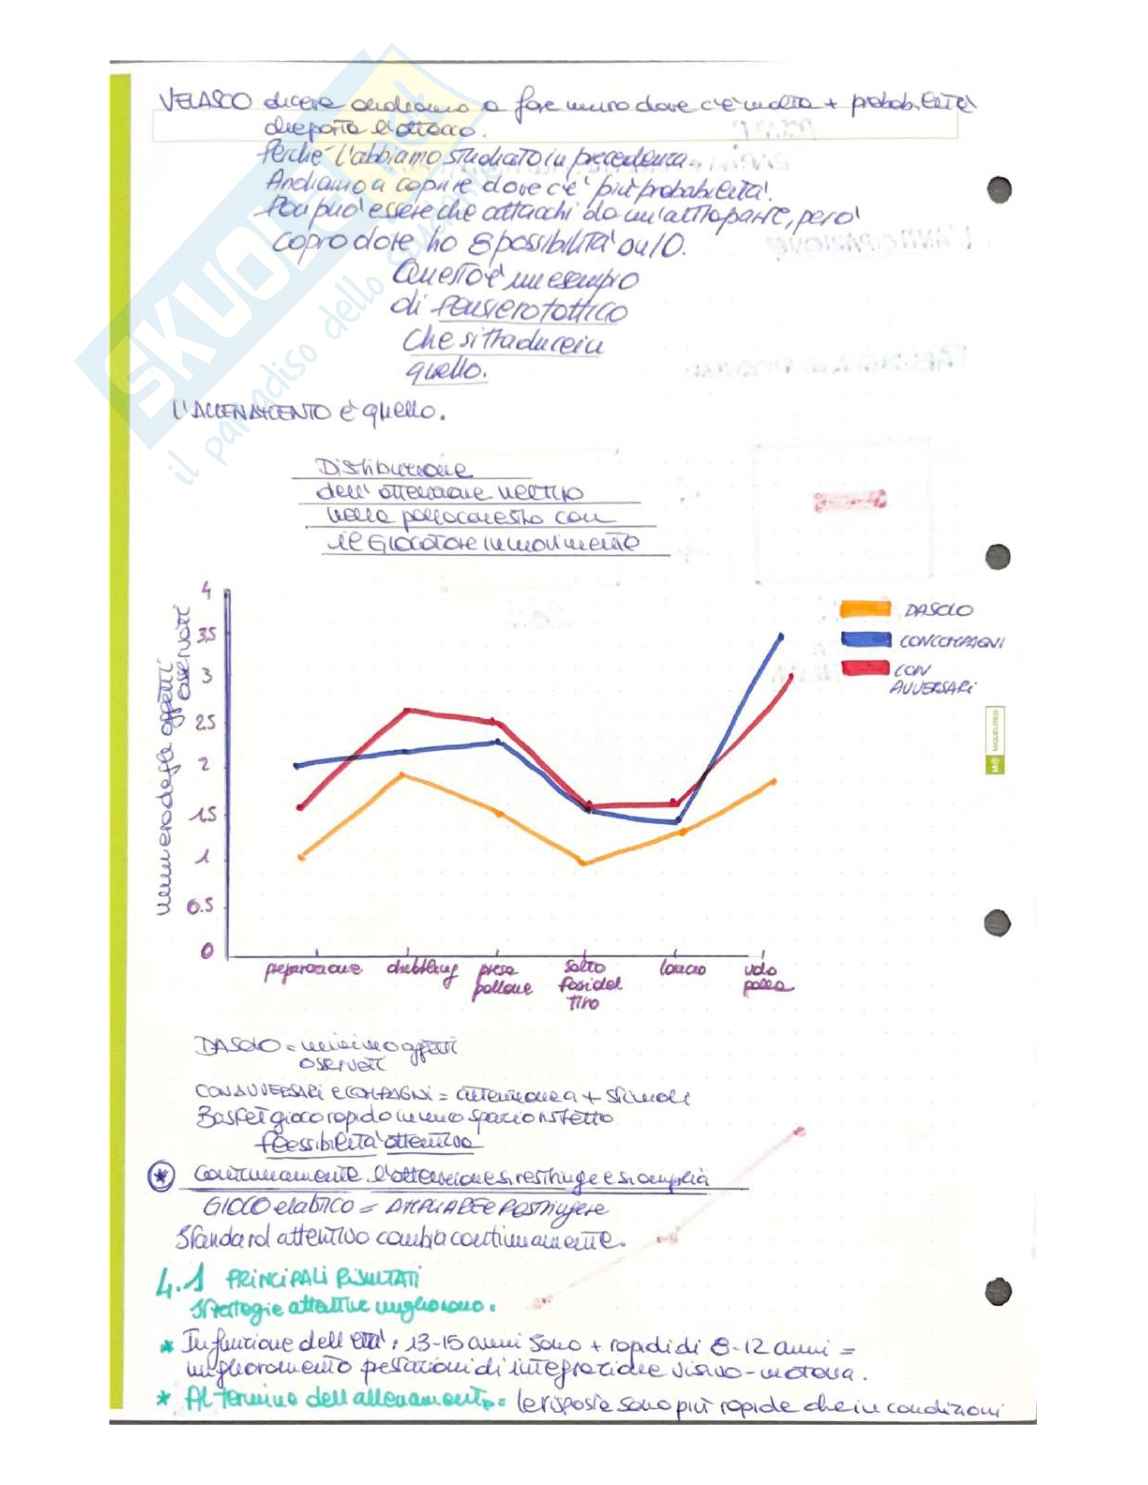 VELASCO diceva andiamo a fare muro dove c'è molta + probabilità
che porta l'attacco.
Perché l'abbiamo studiato in precedenza.
Andiamo a coprire dove c'è più probabilità.
Poi può essere che attacchi da un'altra parte, però
copro dove ho 8 possibilità su 10.
Questo è un esempio
di pensiero tattico
che si traduce in
quello.
L'ALLENAMENTO è quello.
SKUOLA.net
il paradiso dello studente
Distribuzione
dell'attenzione nel tiro
nella pallacanestro con
il giocatore in movimento
numero degli oggetti
osservati
4
3.5
3
2.5
2
1.5
1
0.5
0
DA SOLO
CON COMPAGNI
CON
AVVERSARI
preparazione dribbling presa salto lancio volo
pallone fasi del palla
tiro
DA SOLO = minimo oggetti
osservati
CON AVVERSARI e COMPAGNI = attenzione a + stimoli
Basket gioco rapido in uno spazio ristretto
flessibilità attentiva
* Continuamente l'attenzione si restringe e si amplia
GIOCO elastico = AMPLIARE e Restringere
Standard attentivo cambia continuamente.
4.1 PRINCIPALI RISULTATI
Strategie attentive migliorano.
* In funzione dell'età: 13-15 anni sono + rapidi di 8-12 anni =
miglioramento prestazioni di integrazione visivo-motoria.
* Al termine dell'allenamento = le risposte sono più rapide che in condizioni